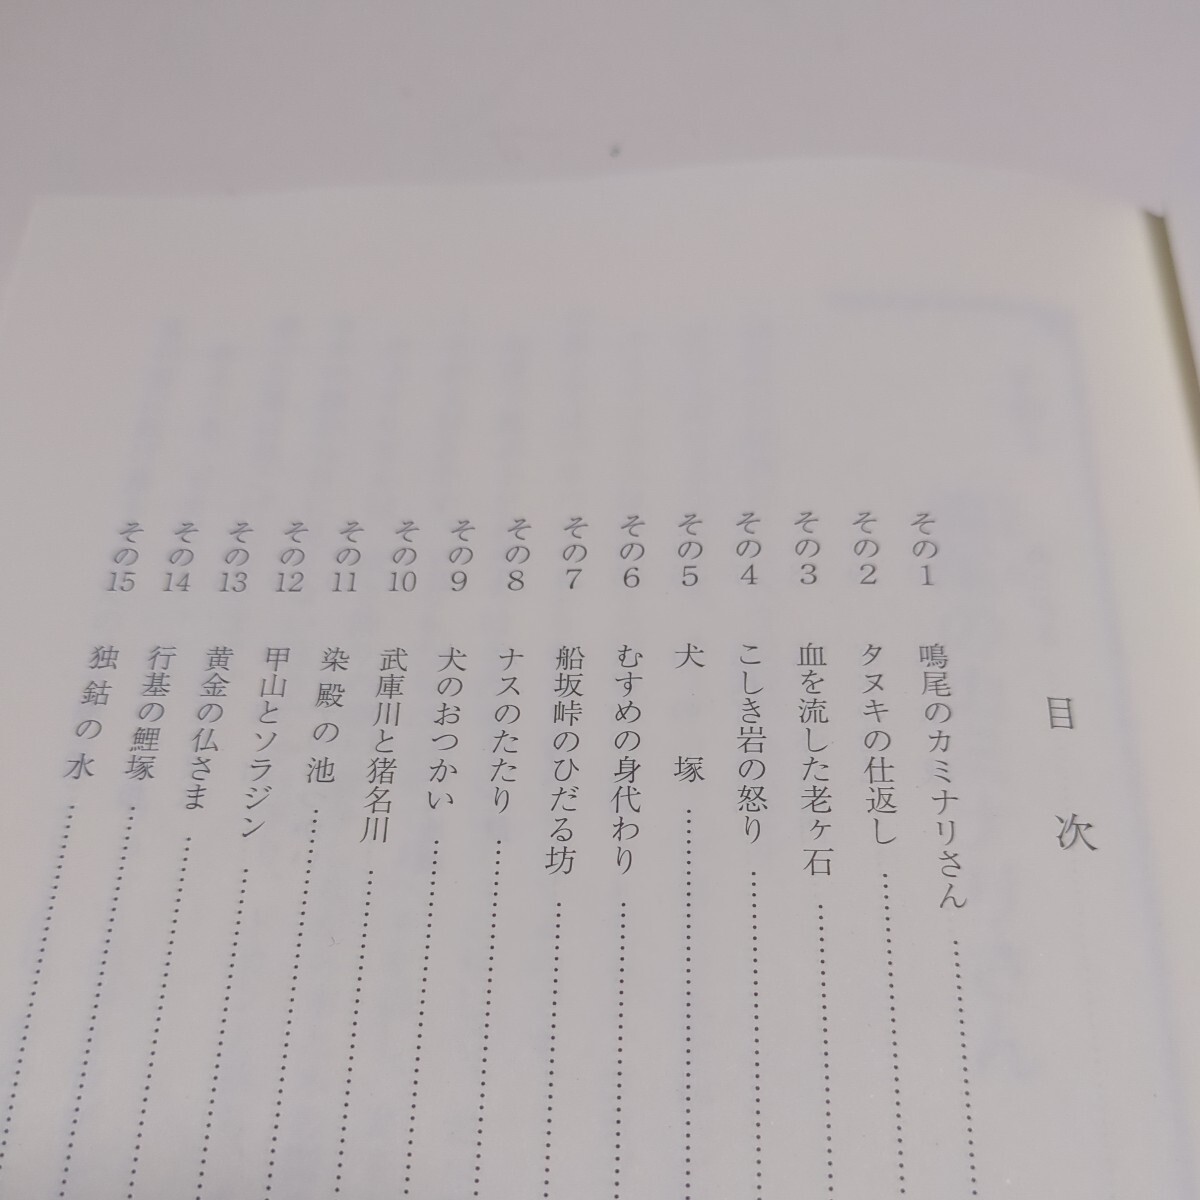 目次
その1 鳴尾のカミナリさん
その2 タヌキの仕返し
その3 血を流した老ヶ石
その4 こしき岩の怒り
その5 犬塚
その6 むすめの身代わり
その7 船坂峠のひだる坊
その8 ナスのたたり
その9 犬のおつかい
その10 武庫川と猪名川
その11 染殿の池
その12 甲山とソラジン
その13 黄金の仏さま
その14 行基の鯉塚
その15 独鈷の水